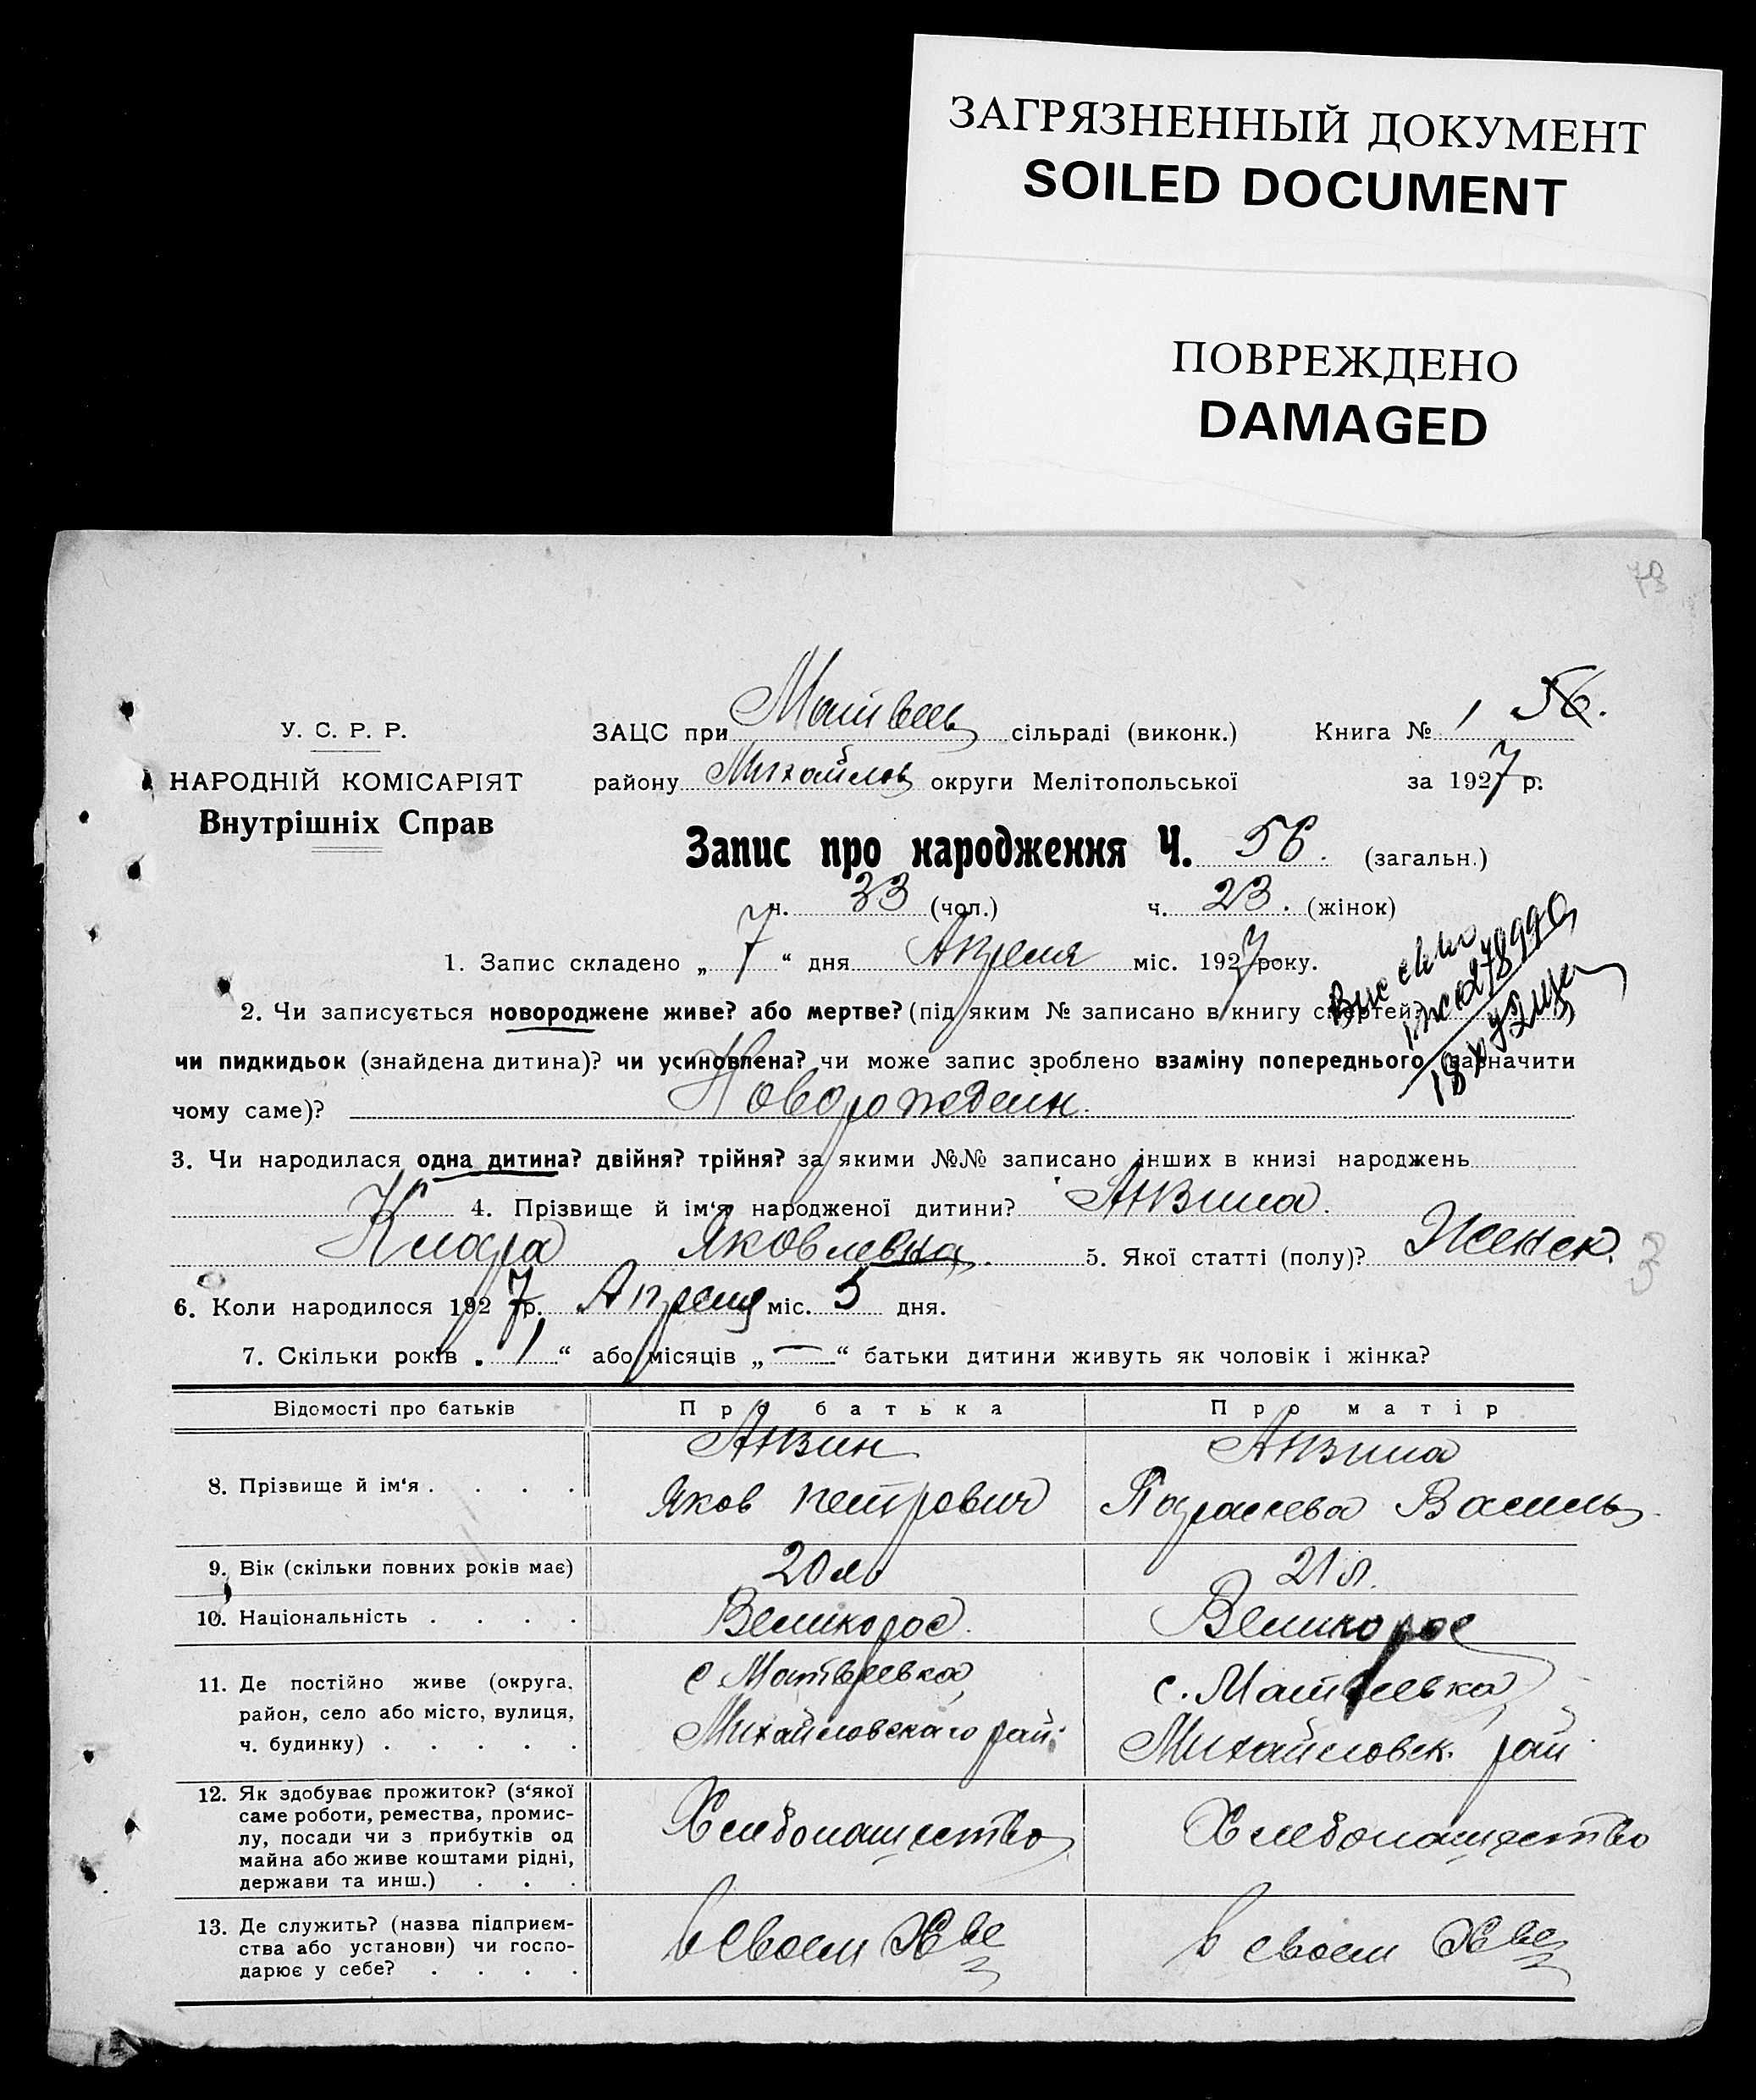 ЗАГРЯЗНЕННЫЙ ДОКУМЕНТ
SOILED DOCUMENT
ПОВРЕЖДЕНО
DAMAGED
У. С. Р. Р.
НАРОДНІЙ КОМІСАРІЯТ
Внутрішніх Справ
ЗАЦС при Матвеев сільраді (виконк.) Книга № 1 56.
району Михайлов округи Мелітопольської за 1927 р.
Запис про народження Ч. 56. (загальн.)
ч. 33 (чол.) ч. 23. (жінок)
1. Запис складено „ 7 “ дня Апреля міс. 1927 року.
2. Чи записується новороджене живе? або мертве? (під яким № записано в книгу смертей?
чи пидкидьок (знайдена дитина)? чи усиновлена? чи може запис зроблено взаміну попереднього (зазначити
чому саме)? Новорожденн.
3. Чи народилася одна дитина? двійня? трійня? за якими №№ записано інших в книзі народжень
4. Прізвище й ім‘я народженої дитини? Анзина.
Клара Яковлевна. 5. Якої статті (полу)? Женск.
6. Коли народилося 1927 р. Апреля міс. 5 дня.
7. Скільки років „ 1 “ або місяців „ — “ батьки дитини живуть як чоловік і жінка?
Відомості про батьків Про батька Про матір
8. Прізвище й ім‘я . . . .
Анзин
Яков Петрович
Анзина
Параскева Василь
9. Вік (скільки повних років має) 20 л 21 л.
10. Національність . . . . Великорос. Великорос
11. Де постійно живе (округа,
район, село або місто, вулиця,
ч. будинку) . . . . .
с Матвеевка
Михайловскаго рай.
с. Матвеевка
Михайловск. рай
12. Як здобуває прожиток? (з‘якої
саме роботи, ремества, промис-
лу, посади чи з прибутків од
майна або живе коштами рідні,
держави та инш.) . . .
Хлебопашество
Хлебопашество
13. Де служить? (назва підприєм-
ства або установи) чи госпо-
дарює у себе? . . . .
в своем Хве
в своем Хве